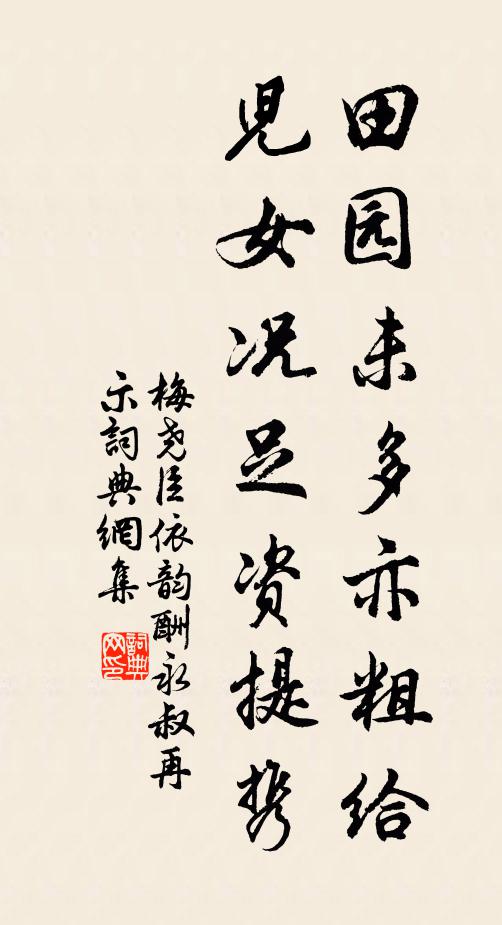 田园未多亦粗给
児女况足资提携
梅尧臣依韵酬永叔再
示詞典網集
詞典网印